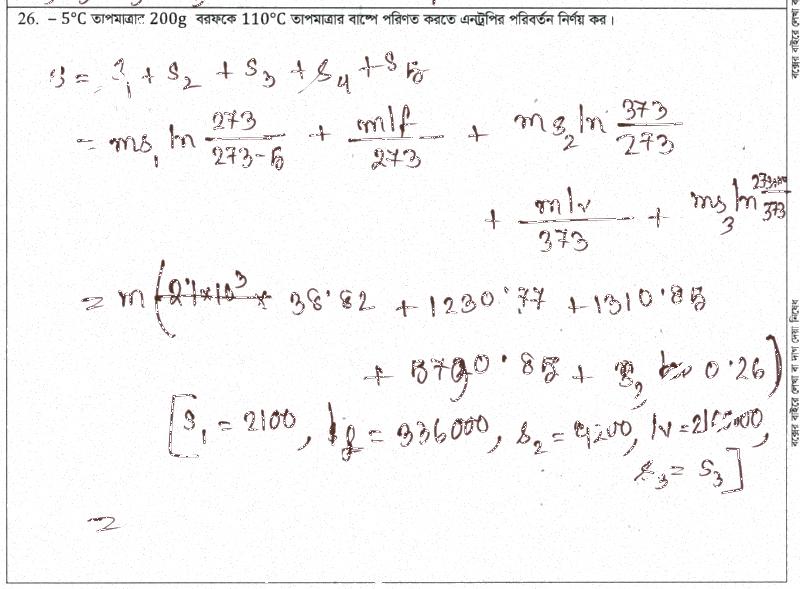 26. – 5°C তাপমাত্রার 200g বরফকে 110°C তাপমাত্রার বাষ্পে পরিণত করতে এনট্রপির পরিবর্তন নির্ণয় কর।
S = S₁ + S₂ + S₃ + S₄ + S₅
= ms₁ ln 273/273-5 + mlf/273 + ms₂ ln 373/273
+ mlv/373 + ms₃ ln /373
= m( 38.82 + 1230.77 + 1310.85
+ 5790.85 + 0.26)
[s₁ = 2100, lf = 336000, s₂ = 4200, lv =
s₃ = s₃]
=
বক্সের বাইরে লেখা বা দাগ দেয়া নিষেধ